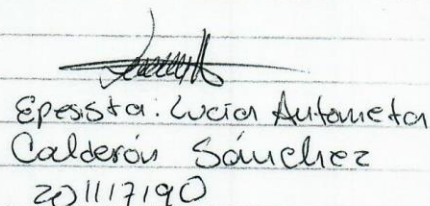 Epesista: Lucía Antonieta
Calderón Sánchez
201117190